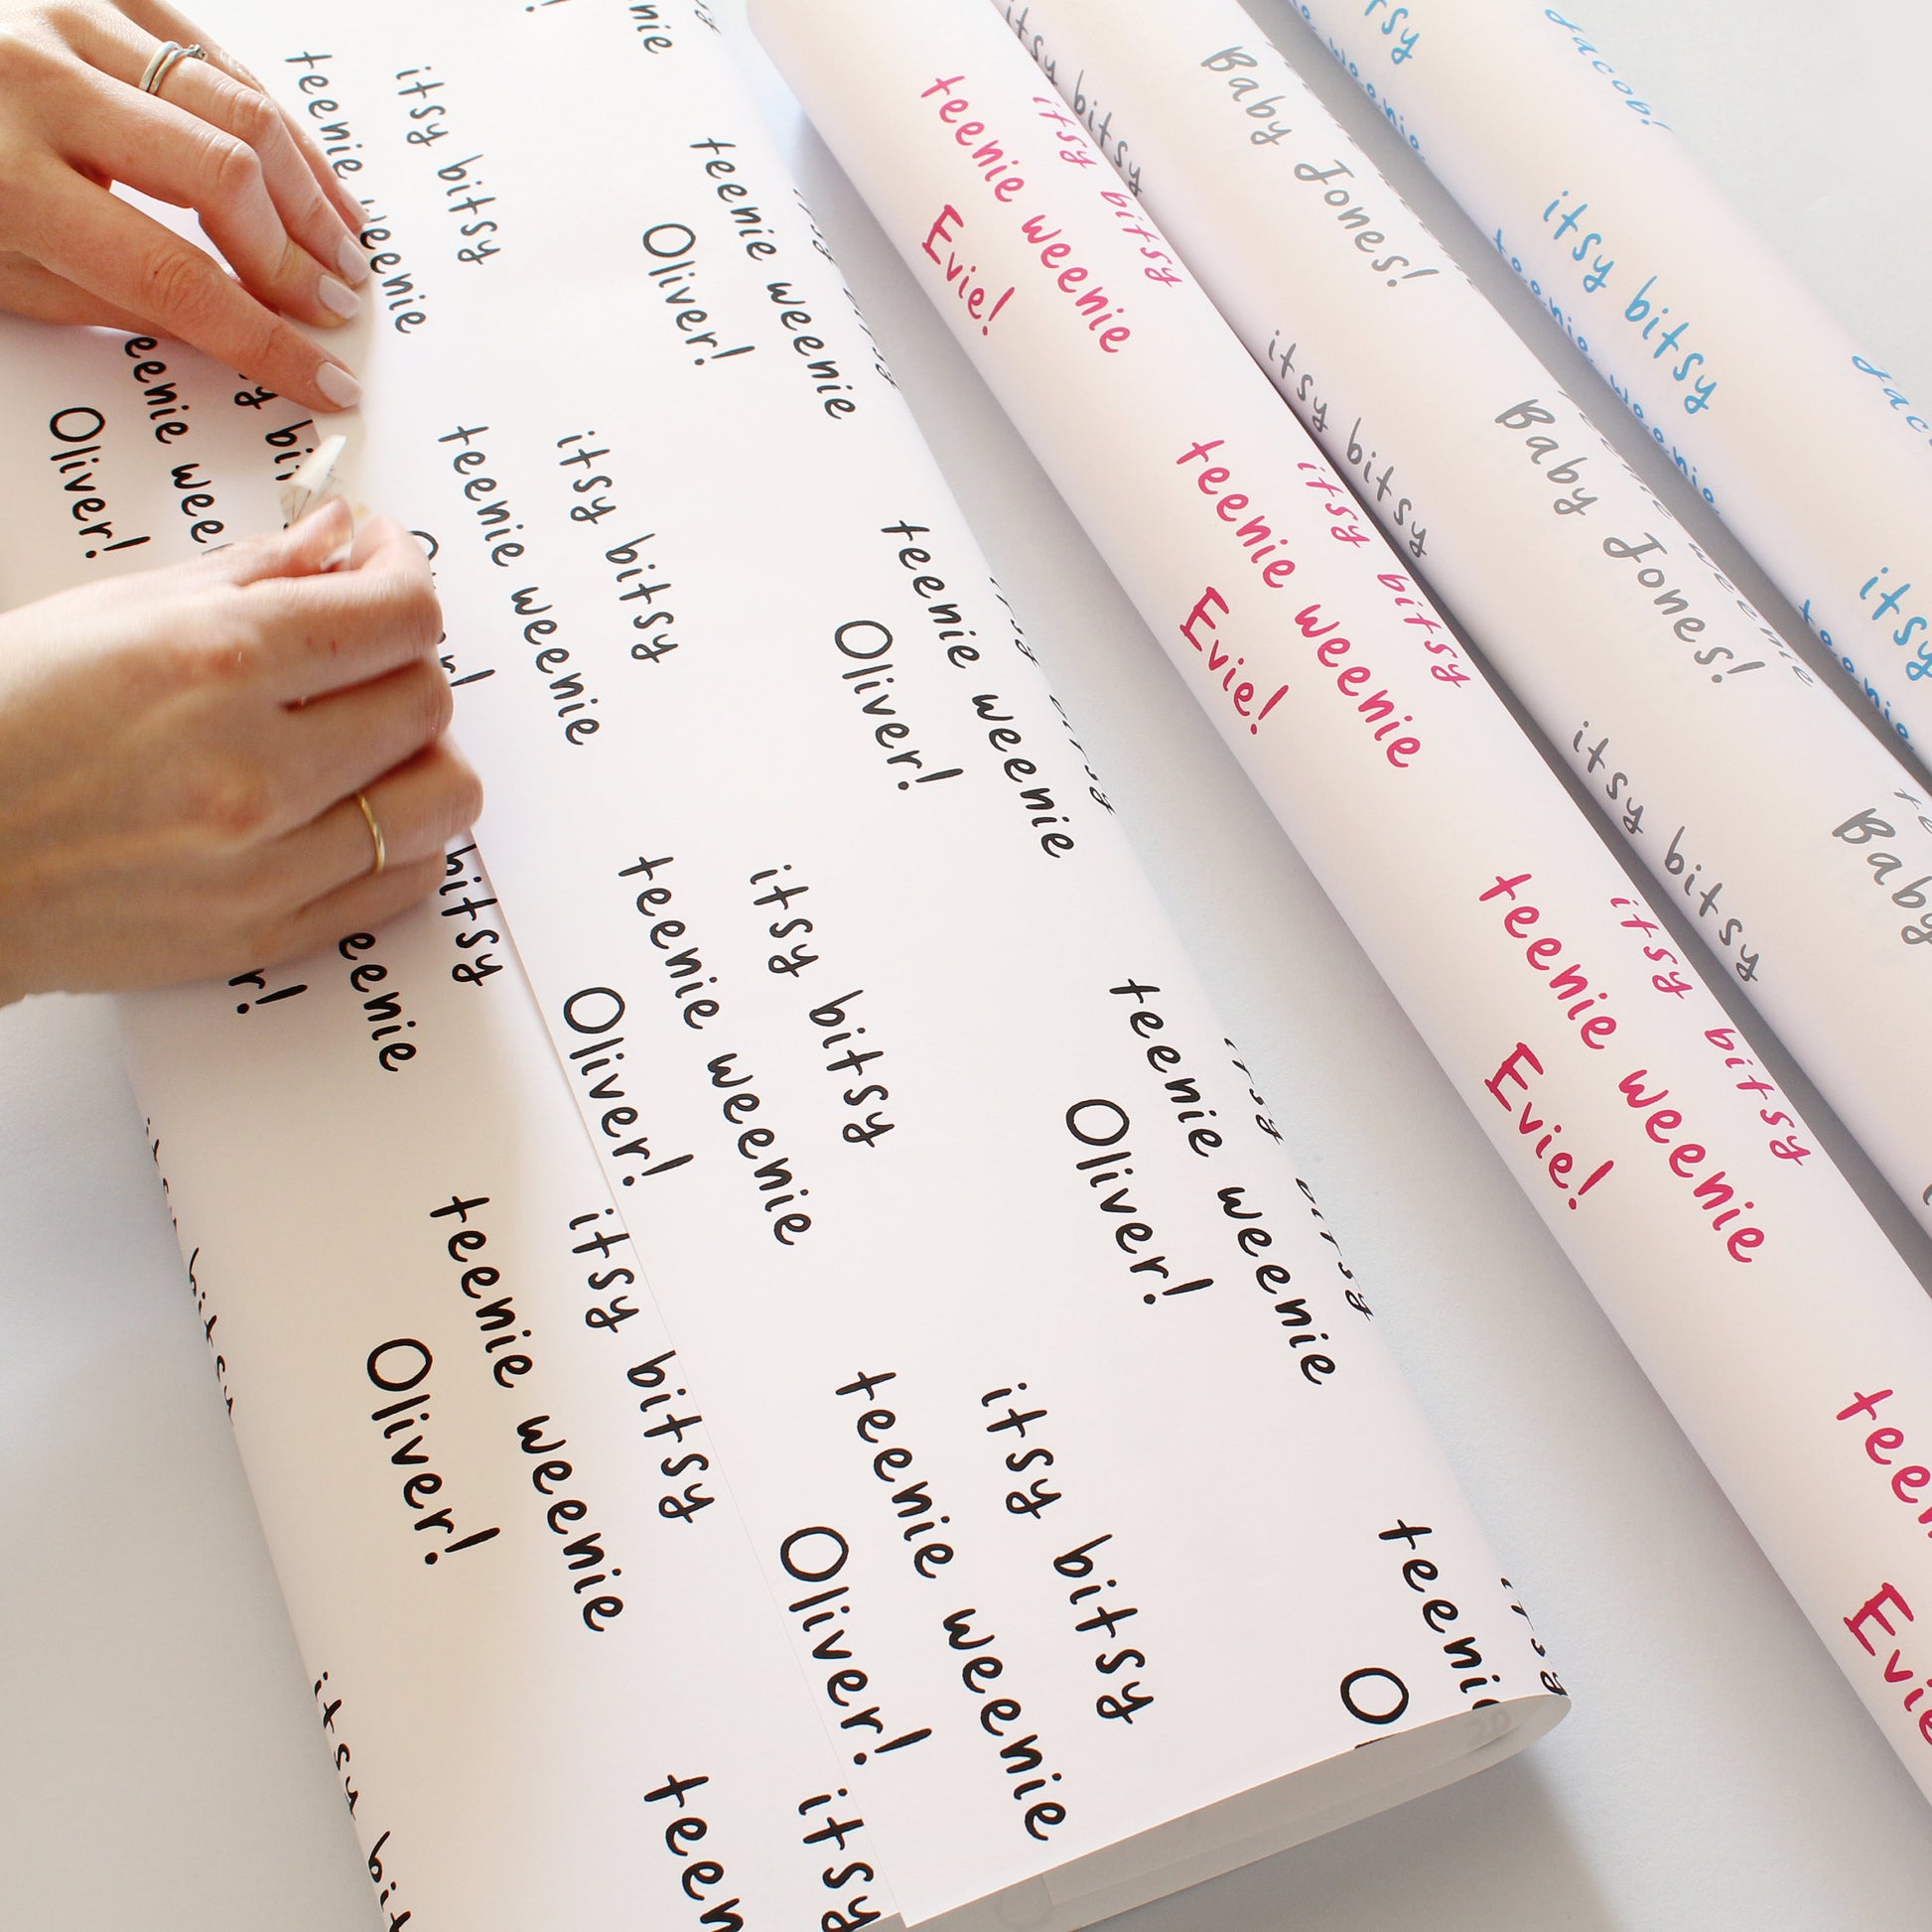 itsy bitsy
teenie weenie
Oliver!
itsy bitsy
teenie weenie
Oliver!
itsy bitsy
teenie weenie
Oliver!
itsy bitsy
teenie weenie
Oliver!
itsy bitsy
teenie weenie
Oliver!
teenie weenie
Oliver!
teenie weenie
Oliver!
teenie weenie
Oliver!
itsy bitsy
teenie weenie
Evie!
itsy bitsy
teenie weenie
Evie!
itsy bitsy
teenie weenie
Evie!
itsy bitsy
Baby Jones!
itsy bitsy
teenie weenie
Baby Jones!
itsy bitsy
Baby
Jacob!
itsy bitsy
teenie weenie
itsy
teenie